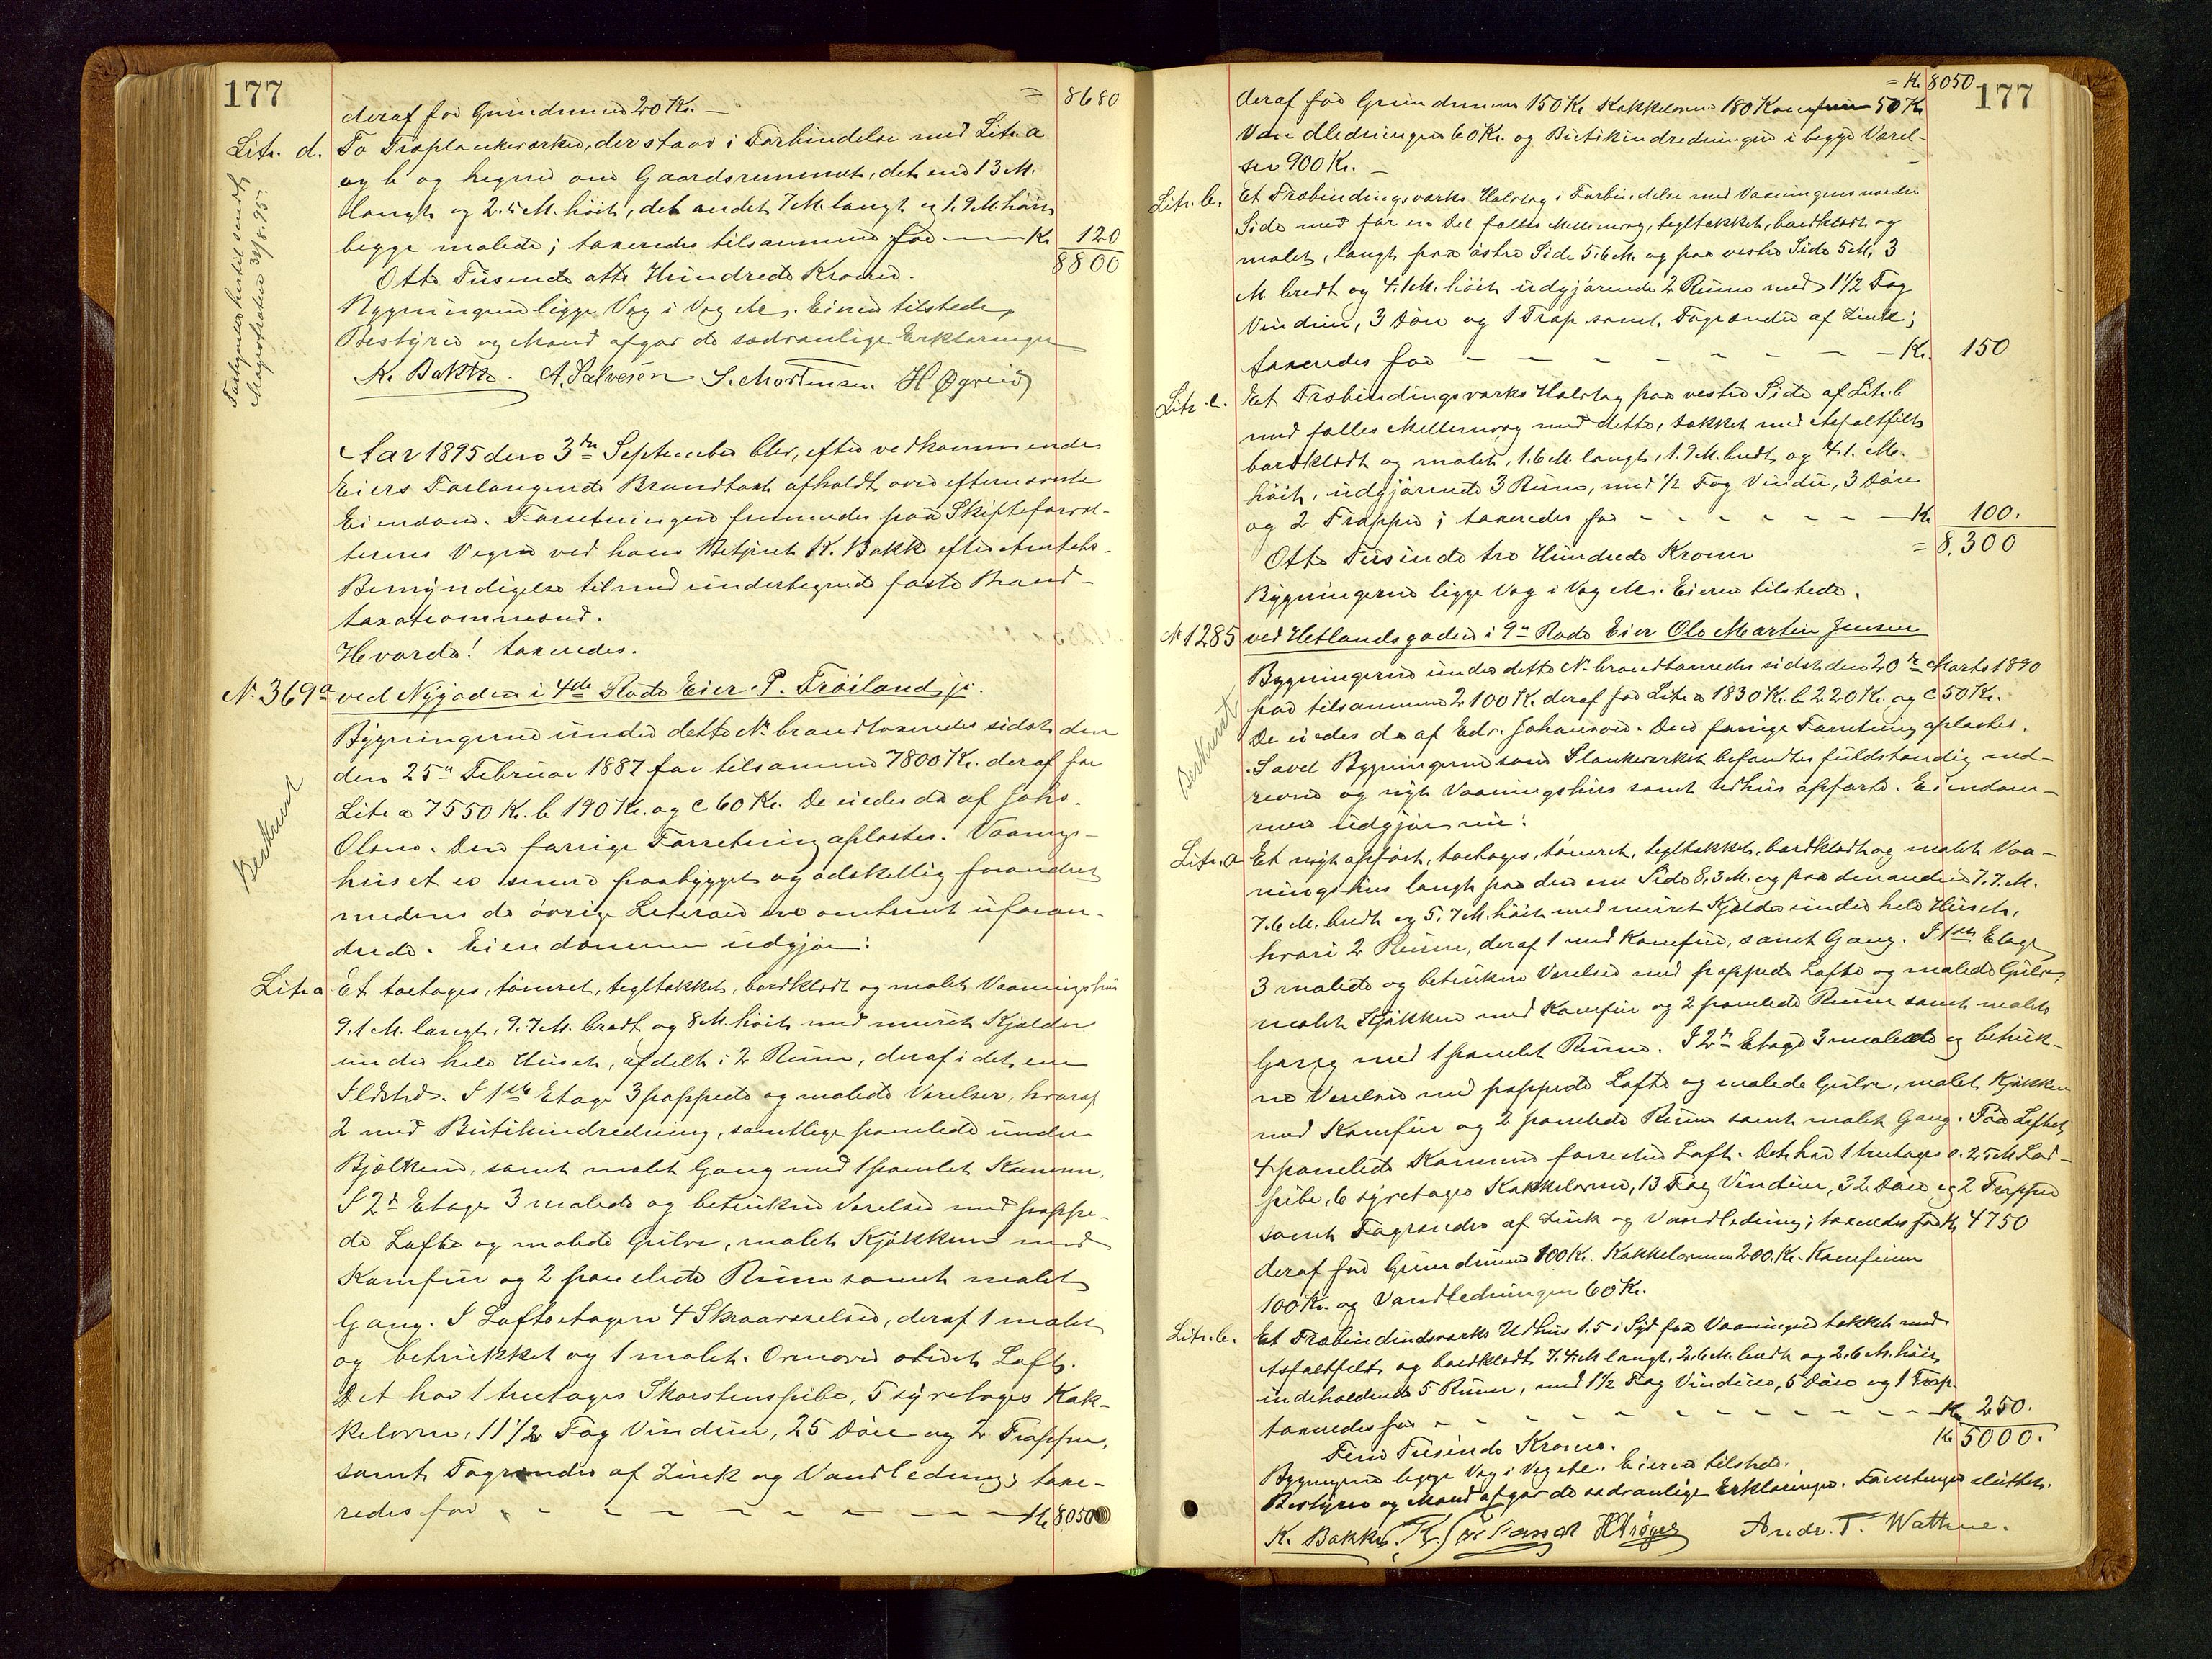 177
deraf for Grundmuren 20 Kr. — = 8680
Litr. d. To Træplankeværker, der staar i Forbindelse med Litr. a
og b og hegner om Gaardsrummet, det ene 13 M.
langt og 2.5 M. höit, det andet 7 M. langt og 1.9 M. höit
begge malede; taxeredes tilsammen for — — Kr. 120
8800
Otte Tusinde otte Hundrede Kroner.
Bygningerne ligge Væg i Væg etc. Eieren tilstede,
Bestyrer og Mænd afgav de sædvanlige Erklæringer
K. Bakke. A. Salvesen S. Mortensen. H Øgreid
Magistraten 31/8.95.
Aar 1895 den 3die September blev, efter vedkommende
Eiers Forlangende Brandtaxt afholdt over efternævnte
Eiendom. Forretningen fremmedes paa Skifteforval-
terens Vegne ved hans Betjent K. Bakke efter Amtets
Bemyndigelse tilmed undertegnede faste Brand-
taxationsmænd.
Hvorda! taxeredes.
No. 369a ved Nygaden i 4de Rode Eier P. Fröiland jr.
Bygningerne under dette No. brandtaxeredes sidst den
den 25de Februar 1887 for tilsammen 7800 Kr. deraf for
Litr a 7550 Kr. b 190 Kr. og c. 60 Kr. De eiedes da af Johs.
Olsen. Den forrige Forretning aflæstes. Vaanings-
huset er senere paabygget og adskillig forandret
medens de övrige Literaer ere omtrent uforan-
drede. Eiendommen udgjör:
Beskrevet
Litr a Et toetages, tömret, tegltækket, bordklædt og malet Vaaningshus
9.1 M. langt, 9.7 M. bredt og 8 M. höit med muret Kjælder
under hele Huset, afdelt i 2 Rum, deraf i det ene
Ildsted. I 1ste Etage 3 pappede og malede Værelser, hvoraf
2 med Butikindredning, samtlige panelede under
Bjælkerne, samt malet Gang med 1 panelet Kammer.
I 2den Etage 3 malede og betrukne Værelser med pappe-
de Lofte og malede Gulve, malet Kjökken med
Komfur og 2 panelede Rum samt malet
Gang. I Loftsetagen 4 Skraaværelser, deraf 1 malet
og betrukket og 1 malet. Ovenover överste Loft.
Det har 1 treetages Skorstenspibe, 5 syretages Kak-
kelovne, 11 1/2 Fag Vinduer, 25 Döre og 2 Trapper,
samt Tagrender af Zink og Vandledning; taxe-
redes for - - - - - - Kr. 8050
177
= Kr. 8050
deraf for Grundmuren 150 Kr. Kakkelovne 180 Komfur 50 Kr.
Vandledningen 60 Kr. og Butikindredningen i begge Værel-
ser 900 Kr. —
Litr. b. Et Træbindingsværks Halvtag i Forbindelse med Vaaningens nordre
Side med for en Del fælles Mellemvæg, tegltækket, bordklædt og
malet, langt paa östre Side 5.6 M. og paa vestre Side 5 M. 3
M bredt og 4.1 M. höit udgjörende 2 Rum med 1 1/2 Fag
Vinduer, 3 Döre og 1 Trap samt Tagrender af Zink;
taxeredes for - - - - - - - Kr. 150
Litr. c. Et Træbindingsværks Halvtag paa vestre Side af Litr. b
med fælles Mellemvæg med dette, tækket med Asfaltfilt
bordklædt og malet, 1.6 M. langt, 1.9 M. bredt og 4.1. M.
höit, udgjörende 3 Rum, med 1/2 Fag Vindu, 3 Döre
og 2 Trapper; taxeredes for - - - - - - Kr. 100.
Otte Tusinde tre Hundrede Kroner = 8,300
Bygningerne ligge Væg i Væg etc. Eieren tilstede.
No 1285 ved Hetlandsgaden i 9de Rode Eier Ole Martin Jensen
Bygningerne under dette No. brandtaxeredes sidst den 20de Marts 1890
for tilsammen 2100 Kr. deraf for Litr. a 1830 Kr. b 220 Kr. og c 50 Kr.
De eiedes da af Edv. Johansen. Den forrige Forretning aflæstes.
Beskrevet
Savel Bygningerne som Plankeværket befandtes fuldstændig ned-
revne og nyt Vaaningshus samt Udhus opförte. Eiendom-
men udgjör nu:
Litr. a Et nyt opfört, toetages, tömret, tegltækket, bordklædt og malet Vaa-
ningshus langt paa den ene Side 8,3 M. og paa den anden 7.7. M.
7.6 M. bredt og 5,7 M. höit med muret Kjælder under hele Huset,
hvori 2 Rum, deraf 1 med Komfur, samt Gang. I 1ste Etage
3 malede og betrukne Værelser med pappede Lofte og malede Gulve,
malet Kjökken med Komfur og 2 panelede Rum samt malet
Gang med 1 panelet Rum. I 2den Etage 3 malede og betruk-
ne Værelser med pappede Lofte og malede Gulve, malet Kjökken
med Komfur og 2 panelede Rum samt malet Gang. Paa Loftet
4 panelede Kammere forresten Loft. Det har 1 treetages
pibe, 6 syretages Kakkelovne, 13 Fag Vinduer, 32 Döre og 2 Trapper
samt Tagrender af Zink og Vandledning; taxeredes for Kr. 4750
deraf for Grundmuren 100 Kr. Kakkelovnene 200. Kr. Komfurene
100 Kr. og Vandledningen 60 Kr.
Litr. b. Et Træbindindsværks Udhus 1.5 i Syd fra Vaaningen tækket med
Asfaltfilt og bordklædt 7.4 M langt, 2.6 M. bredt og 2.6 M. höit,
indeholdende 5 Rum, med 1 1/2 Fag Vinduer, 5 Döre og 1 Trap.
taxeredes for - - - - - - - Kr. 250.
Fem Tusinde Kroner. Kr 5000.
Bygningerne ligge Væg i Væg etc. Eieren tilstede.
Bestyrer og Mænd afgav de sædvanlige Erklæringer. Forretningen sluttet.
K. Bakke. Andr. T. Wathne.